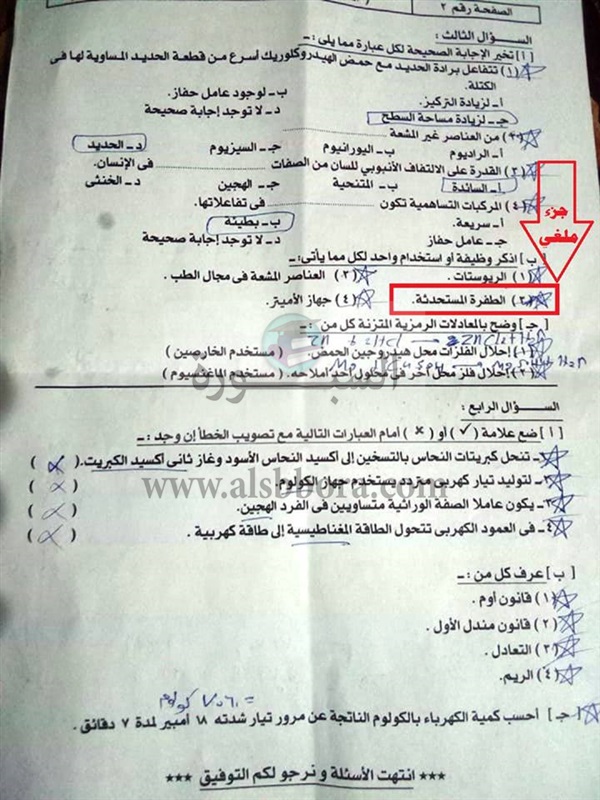 الصفحة رقم ٢
السؤال الثالث:
[أ] تخير الإجابة الصحيحة لكل عبارة مما يلى: ـ
(١) تتفاعل برادة الحديد مع حمض الهيدروكلوريك أسرع من قطعة الحديد المساوية لها فى
الكتلة.
أ ـ لزيادة التركيز. ب ـ لوجود عامل حفاز.
جـ ـ لزيادة مساحة السطح د ـ لا توجد إجابة صحيحة
(٢) من العناصر غير المشعة
أ ـ الراديوم ب ـ اليورانيوم جـ ـ السيزيوم د ـ الحديد
(٣) القدرة على الالتفاف الأنبوبي للسان من الصفات فى الإنسان.
أ ـ السائدة ب ـ المتنحية جـ ـ الهجين د ـ الخنثى
(٤) المركبات التساهمية تكون فى تفاعلاتها.
أ ـ سريعة. ب ـ بطيئة
جـ ـ عامل حفاز د ـ لا توجد إجابة صحيحة
جزء
ملغي
[ب] اذكر وظيفة أو استخدام واحد لكل مما يأتى: ـ
(١) الريوستات. (٢) العناصر المشعة فى مجال الطب.
(٣) الطفرة المستحدثة. (٤) جهاز الأميتر.
[جـ] وضح بالمعادلات الرمزية المتزنة كل من : ـ
(١) إحلال الفلزات محل هيدروجين الحمض. (مستخدم الخارصين)
(٢) إحلال فلز محل آخر فى محلول أحد أملاحه. (مستخدم الماغنسيوم)
السبورة
السؤال الرابع:
[أ] ضع علامة (✓) أو (×) أمام العبارات التالية مع تصويب الخطأ إن وجد: ـ
١ـ تنحل كبريتات النحاس بالتسخين إلى أكسيد النحاس الأسود وغاز ثانى أكسيد الكبريت. ( × )
٢ـ لتوليد تيار كهربى متردد يستخدم جهاز الكولوم. ( × )
www.alsbbora.com
٣ـ يكون عاملا الصفة الوراثية متساويين فى الفرد الهجين. ( × )
٤ـ فى العمود الكهربى تتحول الطاقة المغناطيسية إلى طاقة كهربية . ( × )
[ب] عرف كل من : ـ
(١) قانون أوم .
(٢) قانون مندل الأول .
(٣) التعادل .
(٤) الريم.
= ٧٥٦٠ كولوم
جـ ] أحسب كمية الكهرباء بالكولوم الناتجة عن مرور تيار شدته ١٨ أمبير لمدة ٧ دقائق .
*** انتهت الأسئلة و نرجو لكم التوفيق ***